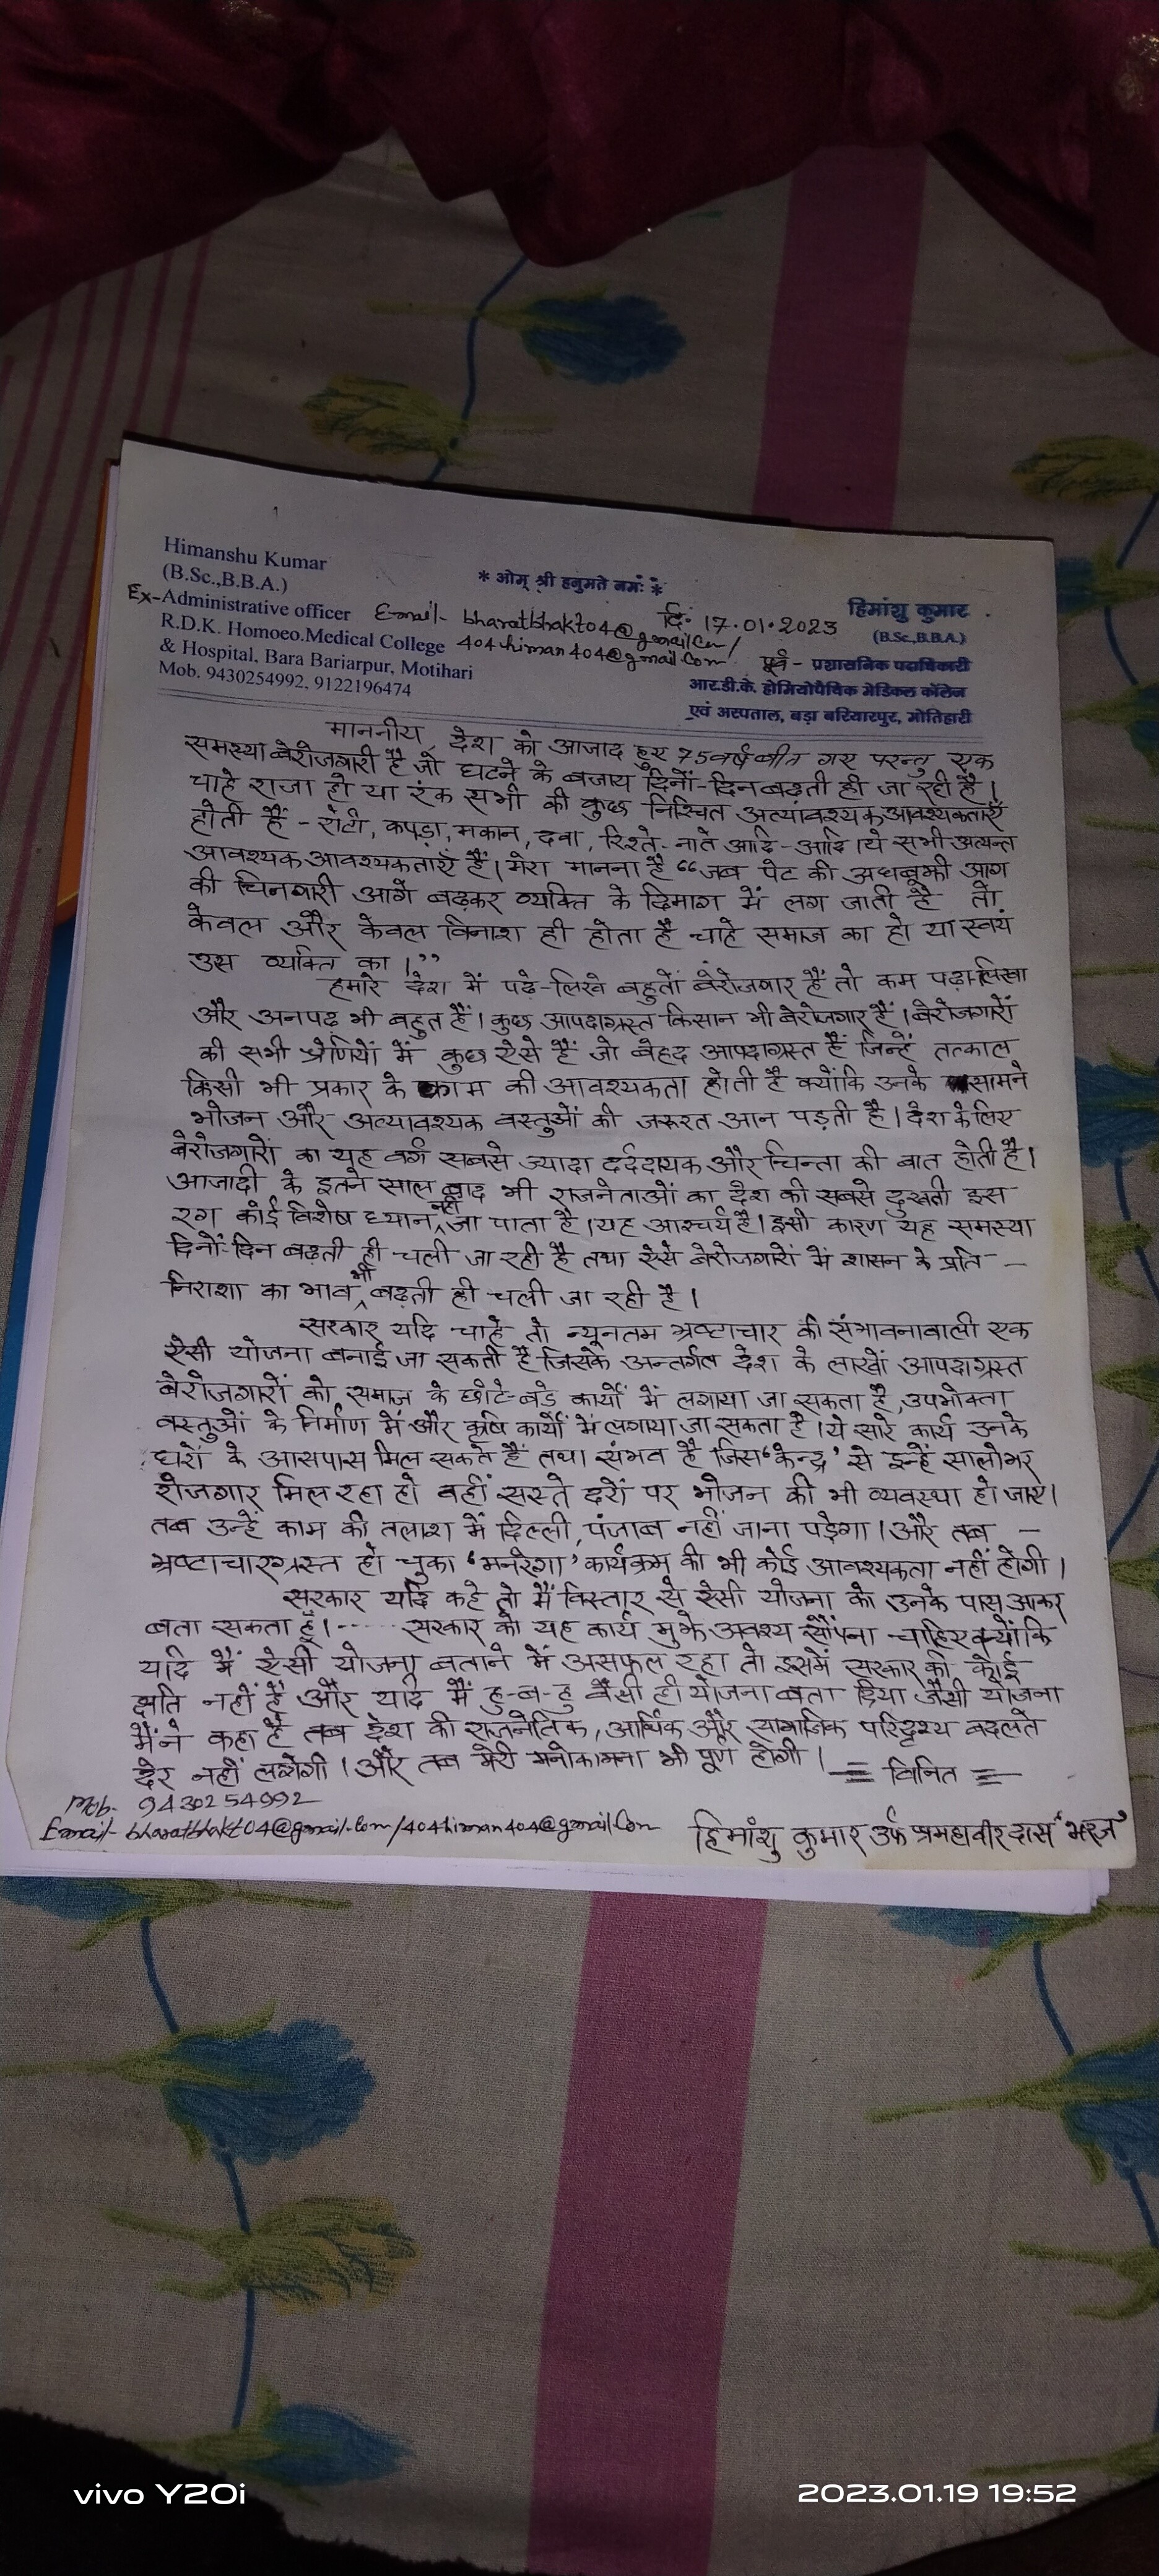 Himanshu Kumar
(B.Sc.,B.B.A.)
Ex-Administrative officer
R.D.K. Homoeo.Medical College
& Hospital, Bara Bariarpur, Motihari
Mob. 9430254992, 9122196474
* ओम् श्री हनुमते नमः *
Email- bharatbhakt04@gmail.com/
404himan404@gmail.com
दि: 17.01.2023
हिमांशु कुमार
(B.Sc.,B.B.A.)
पूर्व - प्रशासनिक पदाधिकारी
आर.डी.के. होमियोपैथिक मेडिकल कॉलेज
एवं अस्पताल, बड़ा बरियारपुर, मोतिहारी
माननीय, देश को आजाद हुए 75वर्ष बीत गए परन्तु एक
समस्या बेरोजगारी है जो घटने के बजाय दिनों-दिन बढ़ती ही जा रही है।
चाहे राजा हो या रंक सभी की कुछ निश्चित अत्यावश्यक आवश्यकताएँ
होती हैं - रोटी, कपड़ा, मकान, दवा, रिश्ते-नाते आदि-आदि। ये सभी अत्यन्त
आवश्यक आवश्यकताएँ हैं। मेरा मानना है “जब पेट की अधबूझी आग
की चिनगारी आगे बढ़कर व्यक्ति के दिमाग में लग जाती है तो
केवल और केवल विनाश ही होता है चाहे समाज का हो या स्वयं
उस व्यक्ति का।”
हमारे देश में पढ़े-लिखे बहुतों बेरोजगार हैं तो कम पढ़ा-लिखा
और अनपढ़ भी बहुत हैं। कुछ आपदाग्रस्त किसान भी बेरोजगार हैं। बेरोजगारों
की सभी श्रेणियों में कुछ ऐसे हैं जो बेहद आपदाग्रस्त हैं जिन्हें तत्काल
किसी भी प्रकार के काम की आवश्यकता होती है क्योंकि उनके सामने
भोजन और अत्यावश्यक वस्तुओं की जरूरत आन पड़ती है। देश के लिए
बेरोजगारों का यह वर्ग सबसे ज्यादा दर्ददायक और चिन्ता की बात होती है।
आजादी के इतने साल बाद भी राजनेताओं का देश की सबसे दुखती इस
रग कोई विशेष ध्यान नहीं जा पाता है। यह आश्चर्य है। इसी कारण यह समस्या
दिनों-दिन बढ़ती ही चली जा रही है तथा ऐसे बेरोजगारों में शासन के प्रति -
निराशा का भाव भी बढ़ती ही चली जा रही है।
सरकार यदि चाहे तो न्यूनतम भ्रष्टाचार की संभावनावाली एक
ऐसी योजना बनाई जा सकती है जिसके अन्तर्गत देश के लाखों आपदाग्रस्त
बेरोजगारों को समाज के छोटे-बडे कार्यों में लगाया जा सकता है, उपभोक्ता
वस्तुओं के निर्माण में और कृषि कार्यों में लगाया जा सकता है। ये सारे कार्य उनके
घरों के आसपास मिल सकते हैं तथा संभव है जिस ‘केन्द्र’ से इन्हें सालोभर
रोजगार मिल रहा हो वहीं सस्ते दरों पर भोजन की भी व्यवस्था हो जाए।
तब उन्हें काम की तलाश में दिल्ली, पंजाब नहीं जाना पड़ेगा। और तब -
भ्रष्टाचारग्रस्त हो चुका ‘मनरेगा’ कार्यक्रम की भी कोई आवश्यकता नहीं होगी।
सरकार यदि कहे तो मैं विस्तार से ऐसी योजना को उनके पास आकर
बता सकता हूँ।..... सरकार को यह कार्य मुझे अवश्य सौंपना चाहिए क्योंकि
यदि मैं ऐसी योजना बताने में असफल रहा तो इसमें सरकार की कोई
क्षति नहीं है और यदि मैं हु-ब-हु वैसी ही योजना बता दिया जैसी योजना
मैंने कहा है तब देश की राजनैतिक, आर्थिक और सामाजिक परिदृश्य बदलते
देर नहीं लगेगी। और तब मेरी मनोकामना भी पूर्ण होगी।
= विनित =
Mob- 9430254992
Email- bharatbhakt04@gmail.com/404himan404@gmail.com
हिमांशु कुमार उर्फ दास
vivo Y20i
2023.01.19 19:52